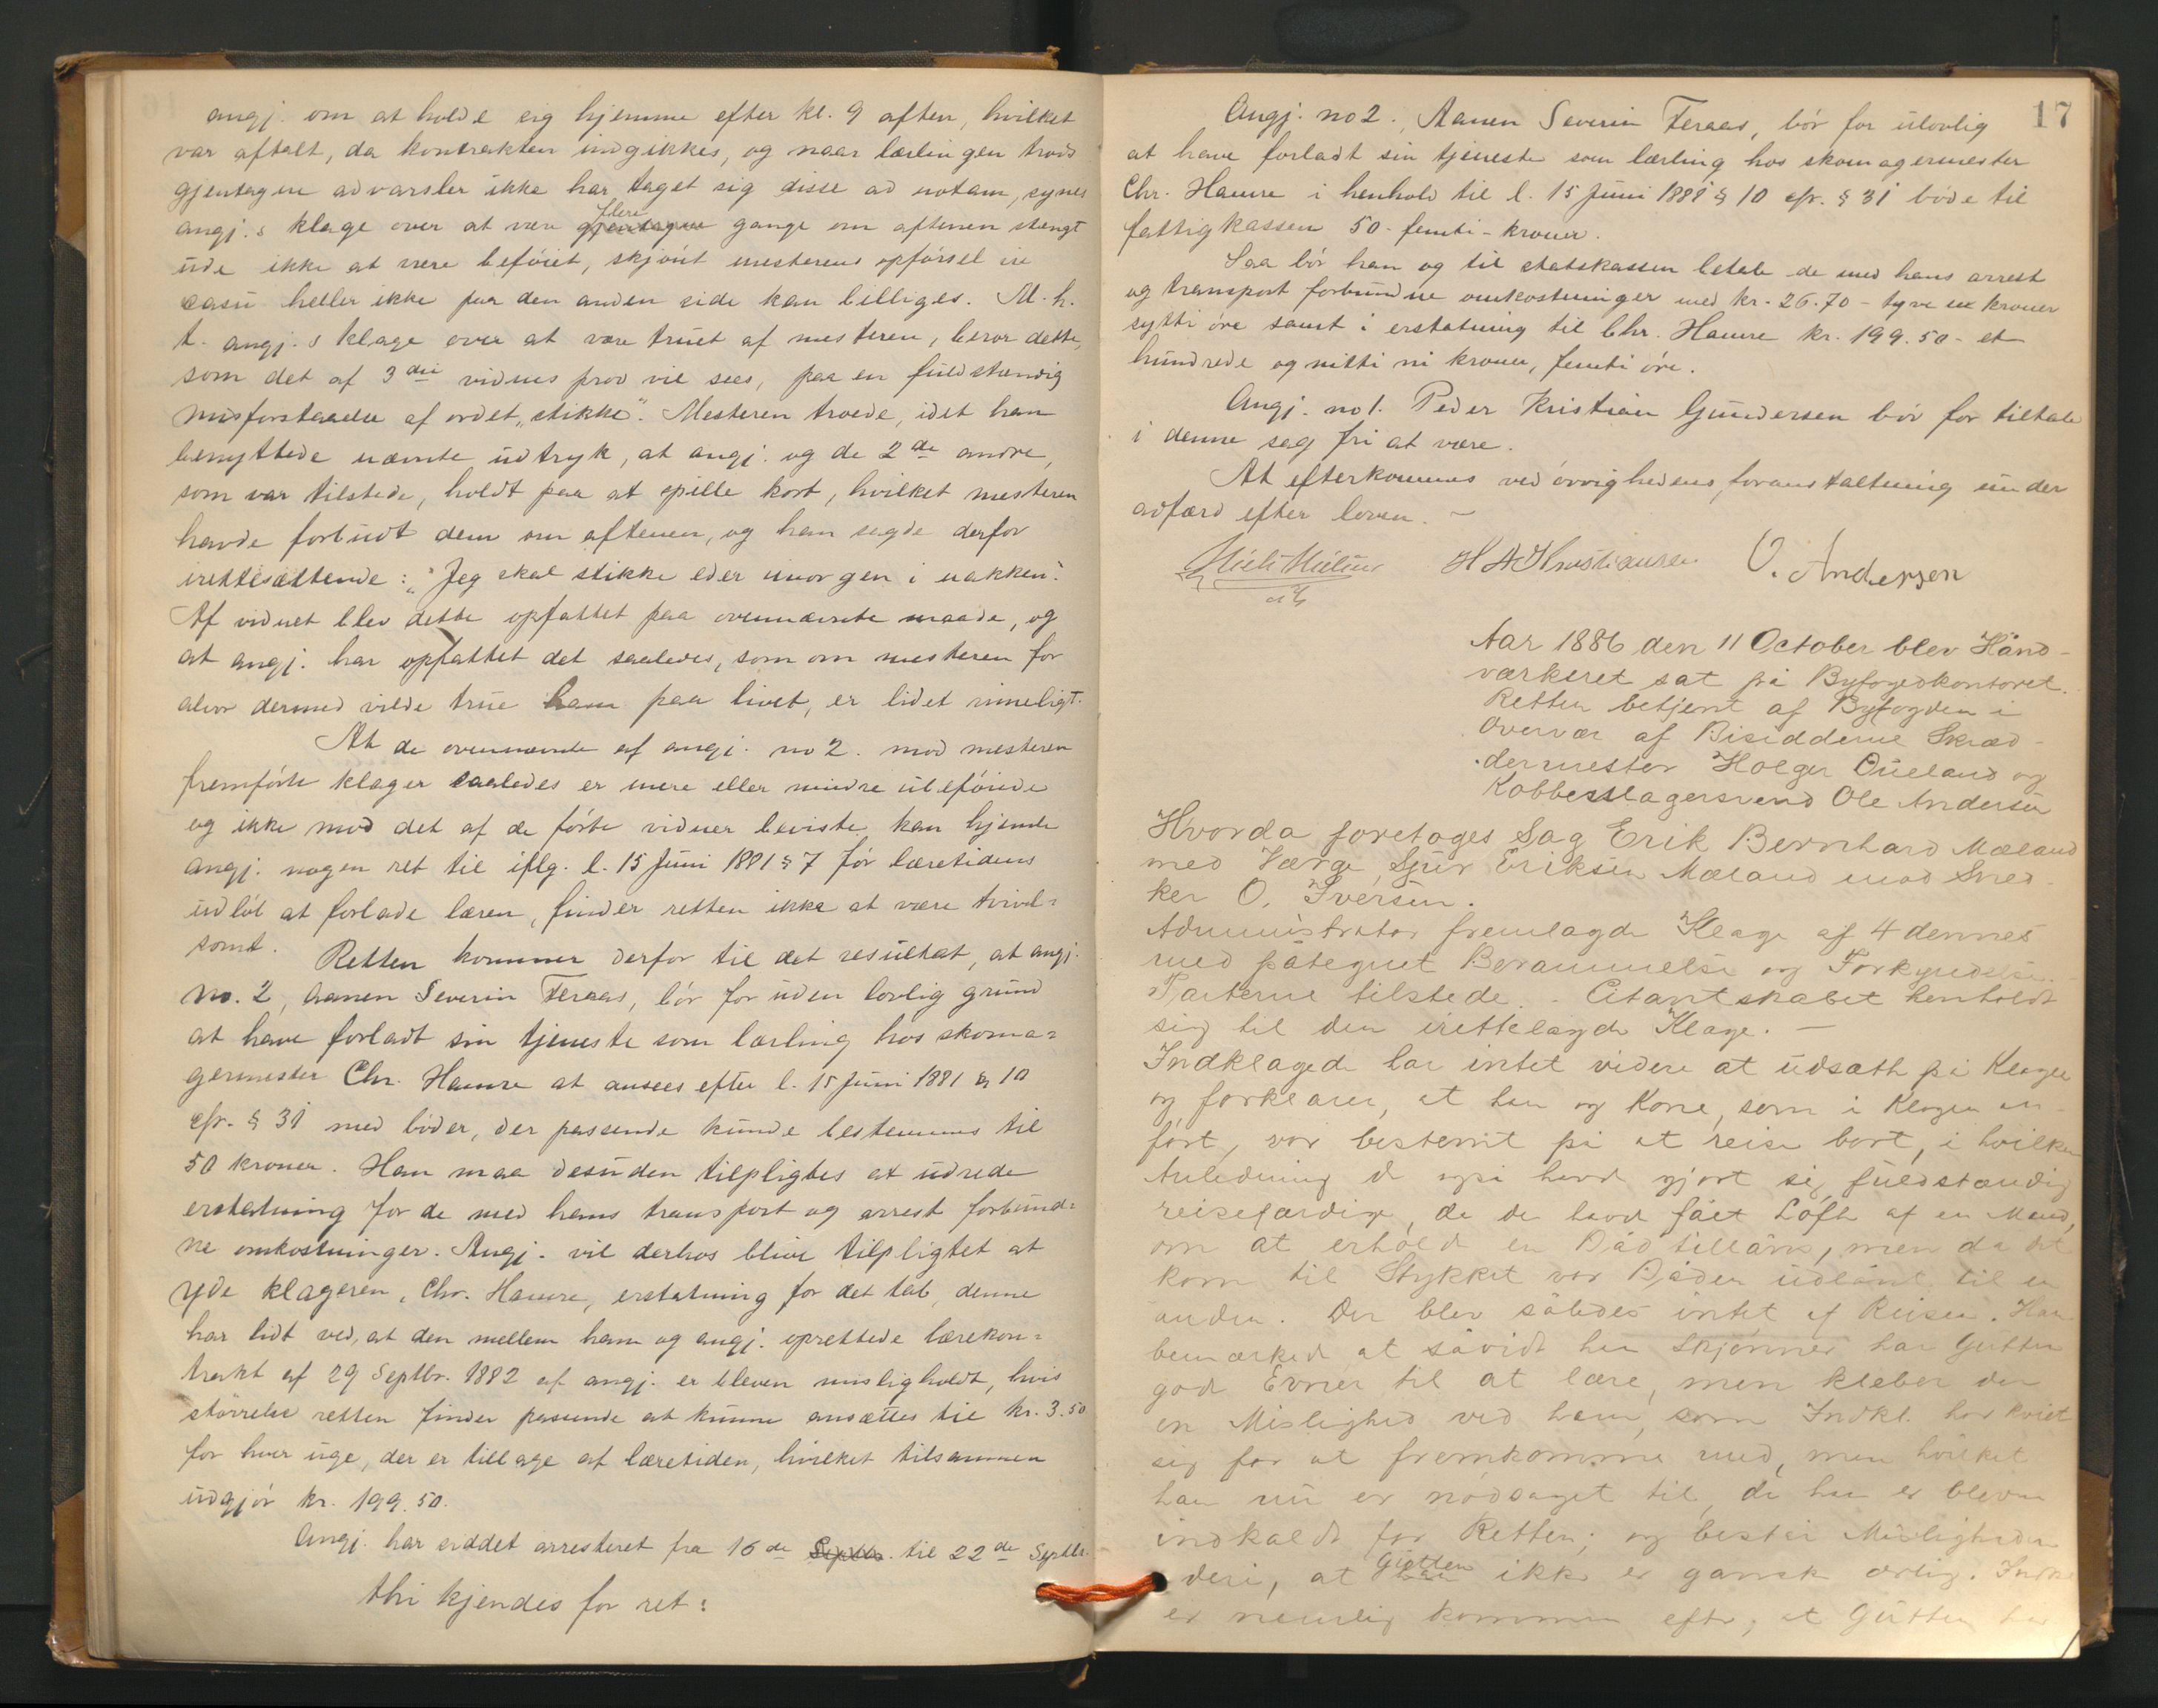 angj. om at holde sig hjemme efter kl. 9 aften, hvilket
var aftalt, da kontrakten indgikkes, og naar lærlingen trods
gjentagne advarsler ikke har taget sig disse ad notam, synes
angj.s klage over at være flere gange om aftenen stengt
ude ikke at være beføiet, skjønt mesterens opførsel in
casu heller ikke paa den anden side kan billiges. M. h.
t. angj.s klage over at være truet af mesteren, beror dette,
som det af 3die vidnes prov vil sees, paa en fuldstændig
misforstaaelse af ordet „stikke". Mesteren troede, idet han
benyttede nævnte udtryk, at angj. og de 2de andre,
som var tilstede, holdt paa at spille kort, hvilket mesteren
havde forbudt dem om aftenen, og han sagde derfor
irettesættende: „Jeg skal stikke eder imorgen i nakken".
Af vidnet blev dette opfattet paa ovennævnte maade, og
at angj. har opfattet det saaledes, som om mesteren for
alvor dermed vilde true ham paa livet, er lidet rimeligt.
At de ovennævnte af angj. no 2. mod mesteren
fremførte klager saaledes er mere eller mindre ubeføiede
og ikke mod det af de førte vidner beviste kan hjemle
angj. nogen ret til iflg. l. 15 Juni 1881 § 7 før læretidens
udløb at forlade læren, finder retten ikke at være tvivl=
somt. Retten kommer derfor til det resultat, at angj.
no. 2, Aanen Severin Feraas, bør for uden lovlig grund
at have forladt sin tjeneste som lærling hos skoma=
germester Chr. Hamre at ansees efter l. 15 Juni 1881 § 10
cfr. § 31 med bøder, der passende kunde bestemmes til
50 kroner. Han maa desuden tilpligtes at udrede
erstatning for de med hans transport og arrest forbund=
ne omkostninger. Angj. vil derhos blive tilpligtet at
yde klageren, Chr. Hamre, erstatning for det tab, denne
har lidt ved, at den mellem ham og angj. oprettede lærekon=
trakt af 29 Septbr. 1882 af angj. er bleven misligholdt, hvis
størrelse retten finder passende at kunne ansættes til kr. 3.50
for hver uge, der er tilbage af læretiden, hvilket tilsammen
udgjør kr. 199.50.
Angj. har siddet arresteret fra 16de Septbr. til 22de Septbr.
thi kjendes for ret:
17
Angj. no 2., Aanen Severin Feraas, bør for ulovlig
at have forladt sin tjeneste som lærling hos skomagermester
Chr. Hamre i henhold til l. 15 Juni 1881 § 10 cfr. § 31 bøde til
fattigkassen 50 - femti - kroner.
Saa bør han og til statskassen betale de med hans arrest
og transport forbundne omkostninger med kr. 26.70 - tyve sex kroner
sytti øre samt i erstatning til Chr. Hamre kr. 199.50 - et
hundrede og nitti ni kroner, femti øre.
Angj. no 1. Peder Kristian Gundersen bør for tiltale
i denne sag fri at være.
At efterkommes ved øvrighedens foranstaltning under
adfærd efter loven. -
H A Kristiansen O. Andersen
Aar 1886 den 11 October blev Hånd-
værkeret sat på Byfogedkontoret.
Retten betjent af Byfogden i
Overvær af Bisidderne Skræd-
dermester Holger Oueland og
Kobberslagersvend Ole Andersen
Hvorda foretoges Sag Erik Bernhard Mæland
med Værge Sjur Eriksen Mæland mod Sned-
ker O. Iversen.
Administrator fremlagde Klage af 4 dennes
med påtegnet Berammelse og Forkyndelse.
Parterne tilstede. - Citantskabet henholdt
sig til den irettelagde Klage. -
Indklagede har intet videre at udsætte på Klagen
og forklarer, at han og Kone, som i Klagen an-
ført, var bestemt på at reise bort, i hvilken
Anledning de også havde gjort sig fuldstændig
reisefærdige, da de havde fået Løfte af en Mand,
om at erholde en Båd tillåns, men da det
kom til Stykket var Båden udlånt til en
anden. Der blev således intet af Reisen. Han
bemærkede at såvidt han skjønner har Gutten
gode Evner til at lære, men kleber der
en Mislighed ved ham, som Indkl. har kviet
sig for at fremkomme med, men hvilket
han nu er nødsaget til, da han er bleven
indkaldt for Retten; og består Misligheden
deri, at Gutten ikke er ganske ærlig. Indkl.
er nemlig kommen efter, at Gutten har